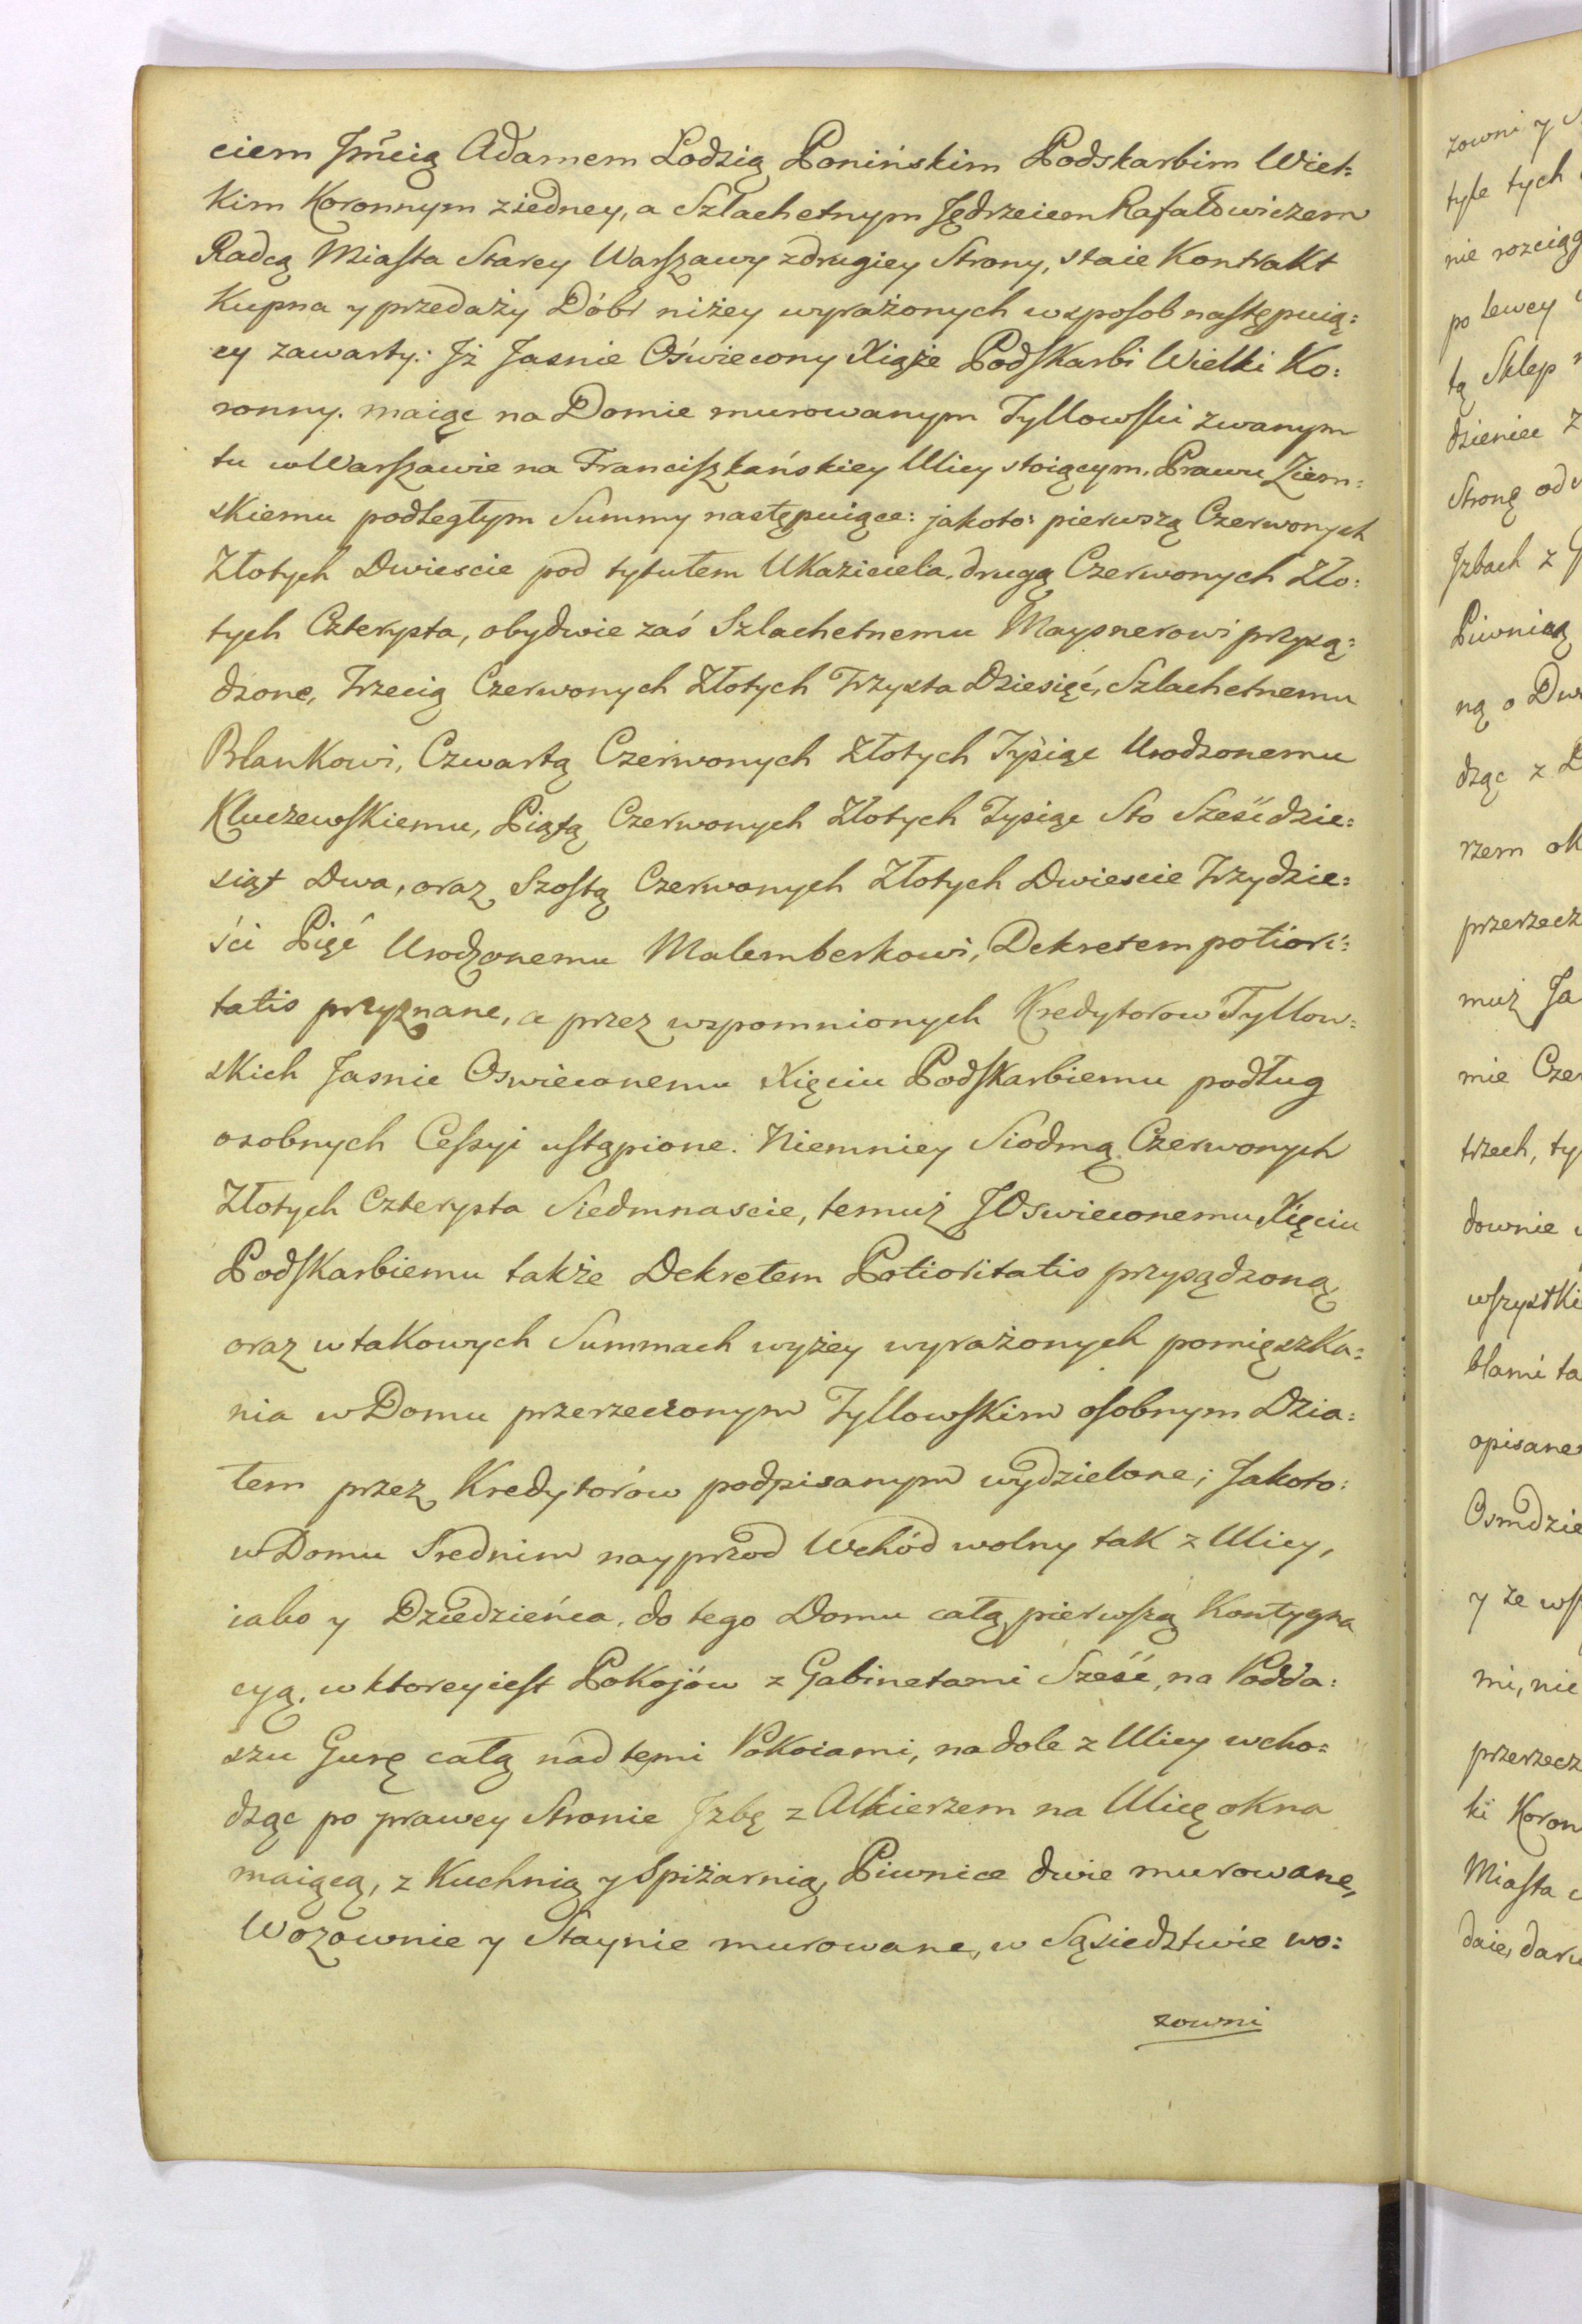 ciem Jmcią Adamem Lodzią Ponińskim Podskarbim Wiel=
kim Koronnym ziedney, a Szlachetnym Jędrzeiem Rafałowiczem
Radcą Miasta Starey Warszawy zdrugiey Strony, staie Kontrakt
Kupna y przedaży Dóbr niżey wyrażonych wsposob następuią=
cy zawarty: Jż Jasnie Oświecony Xiąże Podskarbi Wielki Ko=
ronny. maiąc na Domie murowanym Tyllowski zwanym
tu w Warszawie na Franciszkańskiey Ulicy stoiącym, Prawu Ziem=
skiemu podległym Summy następuiące: jakoto: pierwszą Czerwonych
Złotych Dwiescie pod tytułem Ukaziciela, drugą Czerwonych Zło=
tych Czterysta, obydwie zaś Szlachetnemu Maysnerowi przysą=
dzone, Trzecią Czerwonych Złotych Trzysta Dziesięć, Szlachetnemu
Blankowi, Czwartą Czerwonych Złotych Tysiąc Urodzonemu
Kluczewskiemu, Piątą Czerwonych Złotych Tysiąc Sto Sześćdzie=
siąt Dwa, oraz Szostą Czerwonych Złotych Dwiescie Trzydzie=
ści Pięć Urodzonemu Malemberkowi, Dekretem potiori=
tatis przyznane, a przez wspomnionych Kredytorow Tyllow=
skich Jasnie Oswieconemu Xięciu Podskarbiemu podług
osobnych Cessyi ustąpione. Niemniey Siodmą Czerwonych
Złotych Czterysta Siedmnascie, temuż JOswieconemu Xięciu
Podskarbiemu także Dekretem Potioritatis przysądzoną
oraz w takowych Summach wyżey wyrażonych pomięszka=
nia w Domu przerzeczonym Tyllowskim osobnym Dzia=
łem przez Kredytorów podpisanym wydzielone; Jakoto:
w Domu Srednim nayprzod Wchód wolny tak z Ulicy,
iako y Dziedzieńca, do tego Domu całą pierwszą Kontygna
cyą, w ktorey iest Pokojów z Gabinetami Sześć, na Podda=
szu Gurę całą nad temi Pokoiami, na dole z Ulicy wcho=
dząc po prawey Stronie Jzbę z Alkierzem na Ulicę okna
maiącą, z Kuchnią y Spiżarnią, Piwnice dwie murowane,
Wozownie y Staynie murowane, w Sąsiedztwie wo=
zowni
zowni y
tyle tych
nie rozciąg
po lewey
tą Sklep
dzieniec z
Stronę od
Jzbach z
Piwnicą
ną o Dw
dząc z
rzem ok
przerzecz
muż Ja
mie Czer
trzech, ty
downie
wszystki
blami ta
opisane
Osmdzie
y ze ws
mi, nie
przerzecz
ki Koron
Miasta
daie, daru